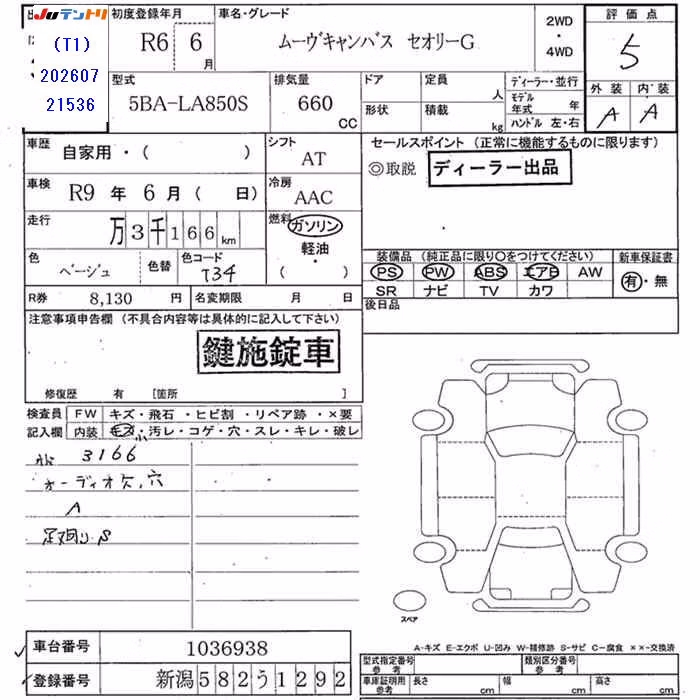 JUテントリ
(T1)
202607
21536
初度登録年月
R6 6月
車名・グレード
ムーヴキャンバス セオリーG
2WD
・
4WD
評価点
5
外装 内装
A A
型式
5BA-LA850S
排気量
660 CC
ドア
形状
定員 人
積載 kg
ディーラー・並行
モデル年式 年
ハンドル 左・右
車歴
自家用・( )
シフト
AT
車検
R9 年 6 月 ( 日)
冷房
AAC
走行
万 3 千 1 6 6 km
燃料
ガソリン
軽油・
( )
色
ベージュ
色替
色コード
T34
R券 8,130 円
名変期限 月 日
セールスポイント (正常に機能するものに限ります)
◎取説 ディーラー出品
装備品 (純正品に限り〇をつけてください)
PS PW ABS エアB AW
SR ナビ TV カワ
新車保証書
有・無
後日品
注意事項申告欄 (不具合内容等は具体的に記入して下さい)
鍵施錠車
修復歴 有 [箇所 ]
検査員 記入欄
FW キズ・飛石・ヒビ割・リペア跡・×要
内装 キズ・汚レ・コゲ・穴・スレ・キレ・破レ
小
3166
オーディオケ、穴
A
足廻りS
スペア
A-キズ E-エクボ U-凹み W-補修跡 S-サビ C-腐食 ××-交換済
✓ 車台番号 1036938
✓ 登録番号 新潟582う1292
型式指定番号 参考
類別区分番号 参考
車庫証明用 参考
長さ cm
幅 cm
高さ cm